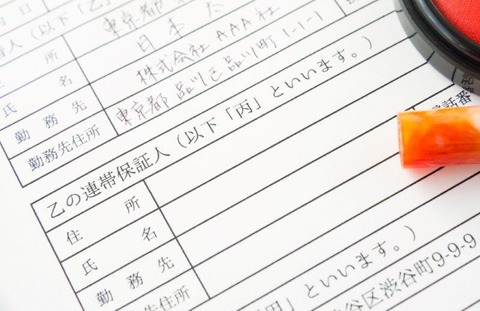 人（以下「乙」
住所 東京都
氏名 日本 太
勤務先 株式会社AAA社
勤務先住所 東京都品川区品川町1-1-1
といいます。）
話番号
乙の連帯保証人（以下「丙」といいます。）
住所
氏名
勤務先
勤務先住所
といいます。）
谷区渋谷町9-9-9